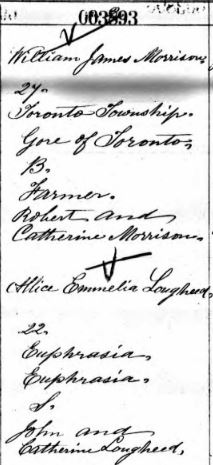 003893
William James Morrison,
27.
Toronto Township.
Gore of Toronto,
B.
Farmer.
Robert and
Catherine Morrison.
Allice Emmelia Lougheed,
22.
Euphrasia,
Euphrasia,
S.
John and
Catherine Lougheed,